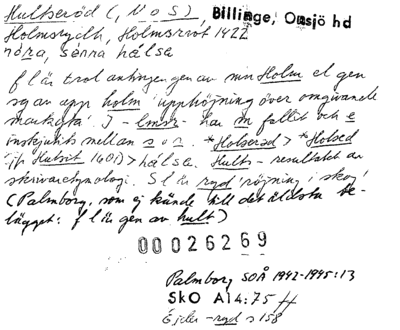 Hultseröd (, N o S), Billinge, Onsjö hd
Holmsrydh, Holmsrröt 1422
nöra, senna hálsa
f l är trol antingen gen av mln Holm el gen
sg av app holm 'upphöjning över omgivande
markyta'. I -lmsr- har m fallit och e
inskjutits mellan s o r. *Holserød > *Holsed
jfr Hulsit 1601) > hálsa. Hults- resultatet av
skrivaretymologi. S l är ryd 'röjning i skog'
(Palmborg, som ej kände till det äldsta be-
lägget: f l är gen av hult)
00026269
Palmborg SOÅ 1942-1945:13
SkO A14:75
Ejder -ryd s 158